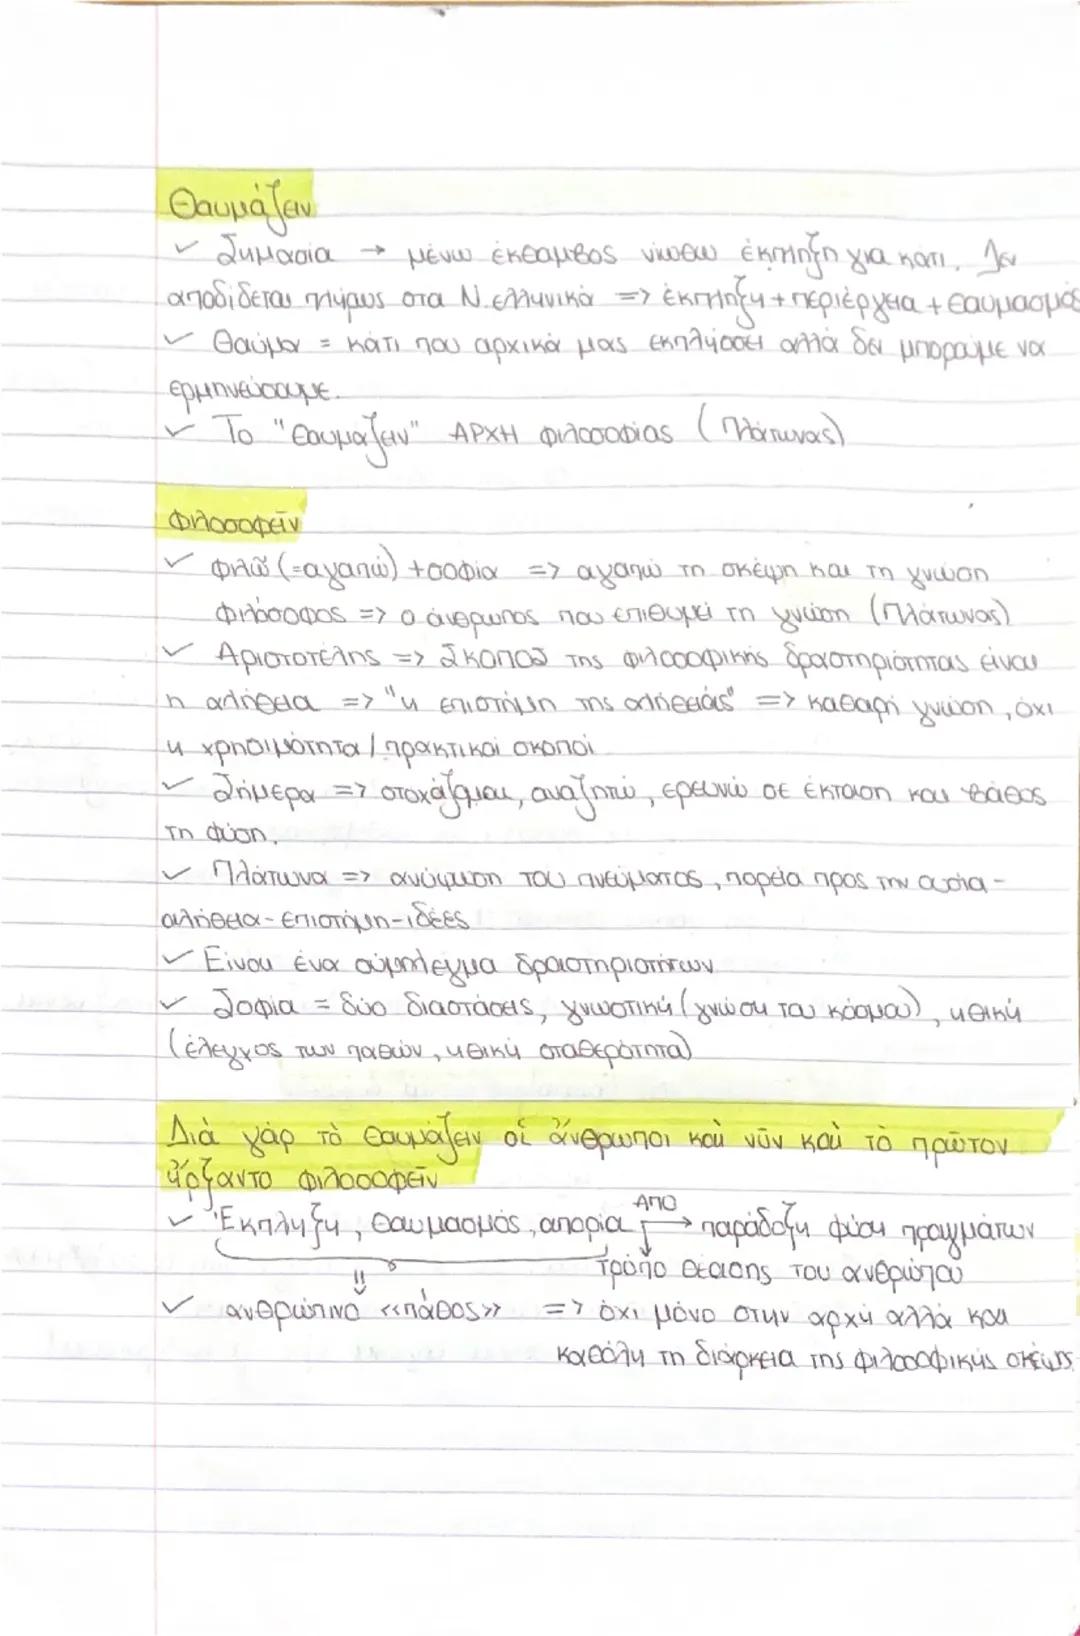 Θαυμάζειν
✓ Σημασία → μένω έκθαμβος νιώθω έκπληξη για κάτι. Δεν
αποδίδεται πλήρως στα Ν.ελληνικά => έκπληξη + περιέργεια + θαυμασμός
✓ Θαύμα = κάτι που αρχικά μας εκπλήσσει αλλά δεν μπορούμε να
ερμηνεύσουμε.
✓ Το "θαυμάζειν" ΑΡΧΗ φιλοσοφίας (Πλάτωνας)
Φιλοσοφεῖν
✓ φιλῶ (=αγαπώ) + σοφία => αγαπώ τη σκέψη και τη γνώση
φιλόσοφος => ο άνθρωπος που επιθυμεί τη γνώση (Πλάτωνας)
✓ Αριστοτέλης => ΣΚΟΠΟΣ της φιλοσοφικής δραστηριότητας είναι
η αλήθεια => "η επιστήμη της αλήθειάς" => καθαρή γνώση, όχι
η χρησιμότητα / πρακτικοί σκοποί
✓ Σήμερα => στοχάζομαι, αναζητώ, ερευνώ σε έκταση και βάθος
τη φύση.
✓ Πλάτωνα => ανύψωση του πνεύματος, πορεία προς την ουσία -
αλήθεια - επιστήμη - ιδέες
✓ Είναι ένα σύμπλεγμα δραστηριοτήτων
✓ Σοφία = δύο διαστάσεις, γνωστική (γνώση του κόσμου), ηθική
(έλεγχος των παθών, ηθική σταθερότητα)
Διὰ γὰρ τὸ θαυμάζειν οἱ ἄνθρωποι καὶ νῦν καὶ τὸ πρῶτον
ἤρξαντο φιλοσοφεῖν
✓ Έκπληξη, θαυμασμός, απορία ΑΠΟ → παράδοξη φύση πραγμάτων
τρόπο θέασης του ανθρώπου
✓ ανθρώπινο «πάθος» => όχι μόνο στην αρχή αλλά και
καθόλη τη διάρκεια της φιλοσοφικής σκέψης